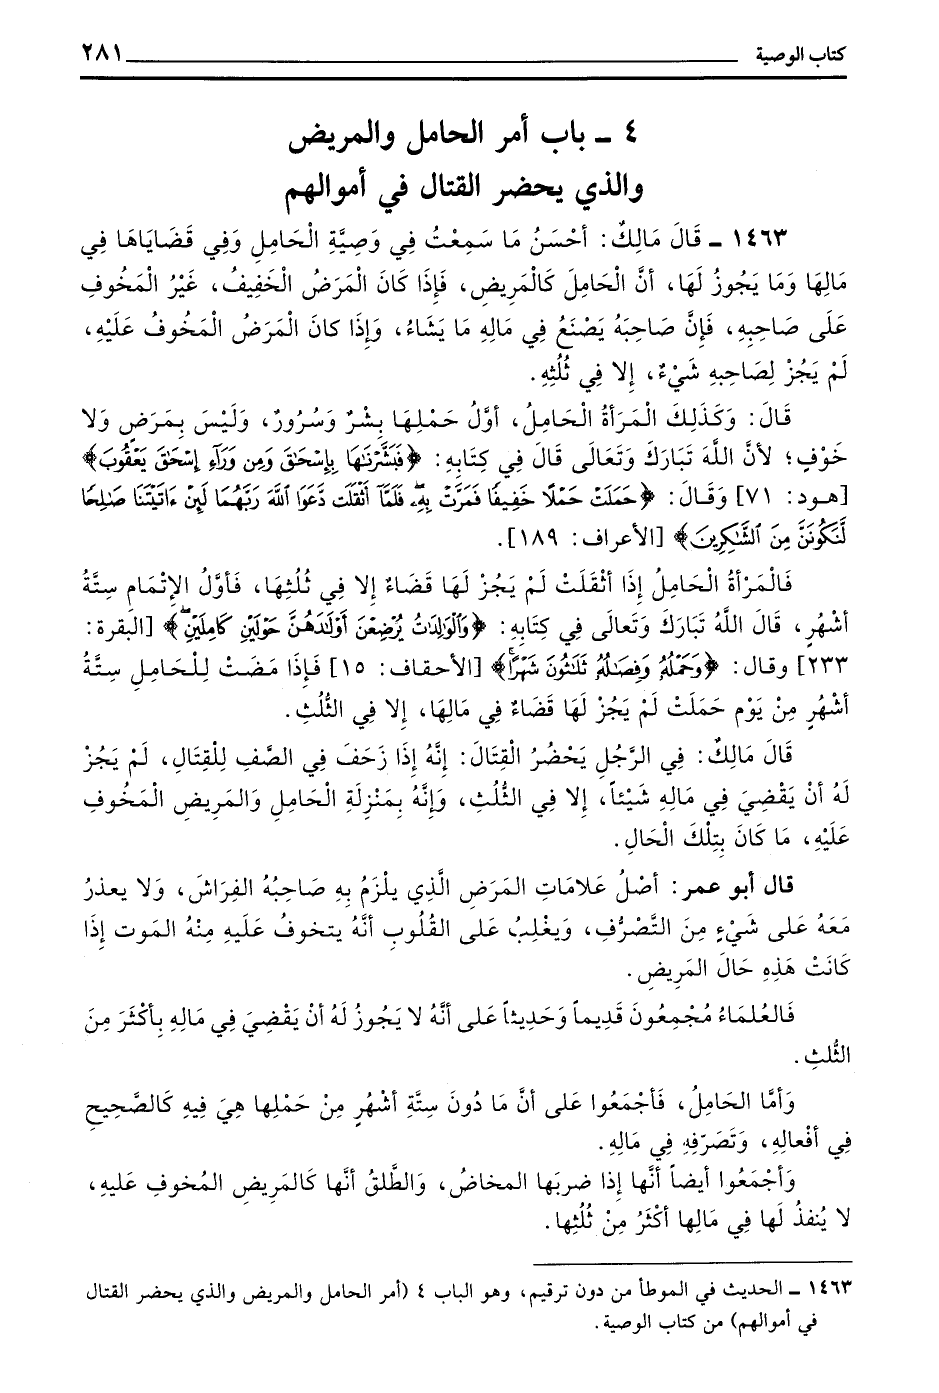 كتاب الوصية ٢٨١
٤ ـ باب أمر الحامل والمريض
والذي يحضر القتال في أموالهم
١٤٦٣ ـ قَالَ مَالِكٌ: أحْسَنُ مَا سَمِعْتُ فِي وَصِيَّةِ الْحَامِلِ وَفِي قَضَايَاهَا فِي
مَالِهَا وَمَا يَجُوزُ لَهَا، أنَّ الْحَامِلَ كَالْمَرِيضِ، فَإِذَا كَانَ الْمَرَضُ الْخَفِيفُ، غَيْرُ الْمَخُوفِ
عَلَى صَاحِبِهِ، فَإِنَّ صَاحِبَهُ يَصْنَعُ فِي مَالِهِ مَا يَشَاءُ، وَإِذَا كانَ الْمَرَضُ الْمَخُوفُ عَلَيْهِ،
لَمْ يَجُزْ لِصَاحِبِهِ شَيْءٌ، إلا فِي ثُلُثِهِ.
قَالَ: وَكَذَلِكَ الْمَرَأةُ الْحَامِلُ، أوَّلُ حَمْلِهَا بِشْرٌ وَسُرُورٌ، وَلَيْسَ بِمَرَضٍ وَلا
خَوْفٍ؛ لأنَّ اللَّهَ تَبَارَكَ وَتَعَالَى قَالَ فِي كِتَابِهِ: ﴿فَبَشَّرْنَٰهَا بِإِسْحَٰقَ وَمِن وَرَآءِ إِسْحَٰقَ يَعْقُوبَ﴾
[هود: ٧١] وَقَالَ: ﴿حَمَلَتْ حَمْلًا خَفِيفًا فَمَرَّتْ بِهِۦۖ فَلَمَّآ أَثْقَلَت دَّعَوَا ٱللَّهَ رَبَّهُمَا لَئِنْ ءَاتَيْتَنَا صَٰلِحًا
لَّنَكُونَنَّ مِنَ ٱلشَّٰكِرِينَ﴾ [الأعراف: ١٨٩].
فَالْمَرْأةُ الْحَامِلُ إِذَا أثْقَلَتْ لَمْ يَجُزْ لَهَا قَضَاءٌ إلا فِي ثُلُثِهَا، فَأوَّلُ الإتْمَامِ سِتَّةُ
أشْهُرٍ، قَالَ اللَّهُ تَبَارَكَ وَتَعَالَى فِي كِتَابِهِ: ﴿وَٱلْوَٰلِدَٰتُ يُرْضِعْنَ أَوْلَٰدَهُنَّ حَوْلَيْنِ كَامِلَيْنِۖ﴾ [البقرة:
٢٣٣] وقال: ﴿وَحَمْلُهُۥ وَفِصَٰلُهُۥ ثَلَٰثُونَ شَهْرًاۚ﴾ [الأحقاف: ١٥] فَإِذَا مَضَتْ لِلْحَامِلِ سِتَّةُ
أشْهُرٍ مِنْ يَوْمِ حَمَلَتْ لَمْ يَجُزْ لَهَا قَضَاءٌ فِي مَالِهَا، إلا فِي الثُّلُثِ.
قَالَ مَالِكٌ: فِي الرَّجُلِ يَحْضُرُ الْقِتَالَ: إنَّهُ إذَا زَحَفَ فِي الصَّفِ لِلْقِتَالِ، لَمْ يَجُزْ
لَهُ أنْ يَقْضِيَ فِي مَالِهِ شَيْئاً، إلا فِي الثُّلُثِ، وَإِنَّهُ بِمَنْزِلَةِ الْحَامِلِ وَالمَرِيضِ الْمَخُوفِ
عَلَيْهِ، مَا كَانَ بِتِلْكَ الْحَالِ.
قال أبو عمر: أصْلُ عَلامَاتِ المَرَضِ الَّذِي يلْزَمُ بِهِ صَاحِبُهُ الفِرَاشَ، وَلا يعذرُ
مَعَهُ عَلى شَيْءٍ مِنَ التَّصَرُّفِ، وَيغْلِبُ عَلى القُلُوبِ أنَّهُ يتخوفُ عَلَيهِ مِنْهُ المَوت إذَا
كَانَتْ هَذِهِ حَالَ المَرِيضِ.
فَالعُلمَاءُ مُجْمِعُونَ قَدِيماً وَحَدِيثاً عَلى أنَّهُ لا يَجُوزُ لَهُ أنْ يَقْضِيَ فِي مَالِهِ بِأكْثَرَ مِنَ
الثُّلثِ.
وَأمَّا الحَامِلُ، فَأجْمَعُوا عَلى أنَّ مَا دُونَ سِتَّةِ أشْهُرٍ مِنْ حَمْلِها هِيَ فِيهِ كَالصَّحِيحِ
فِي أفْعَالِهِ، وَتَصَرّفِهِ فِي مَالِهِ.
وَأجْمَعُوا أيضاً أنَّها إذَا ضربَها المخاضُ، وَالطَّلقُ أنَّها كَالمَرِيضِ المُخوفِ عَليهِ،
لا يُنفذُ لَها فِي مَالِها أكْثَرُ مِنْ ثُلُثِها.
١٤٦٣ ـ الحديث في الموطأ من دون ترقيم، وهو الباب ٤ (أمر الحامل والمريض والذي يحضر القتال
في أموالهم) من كتاب الوصية.